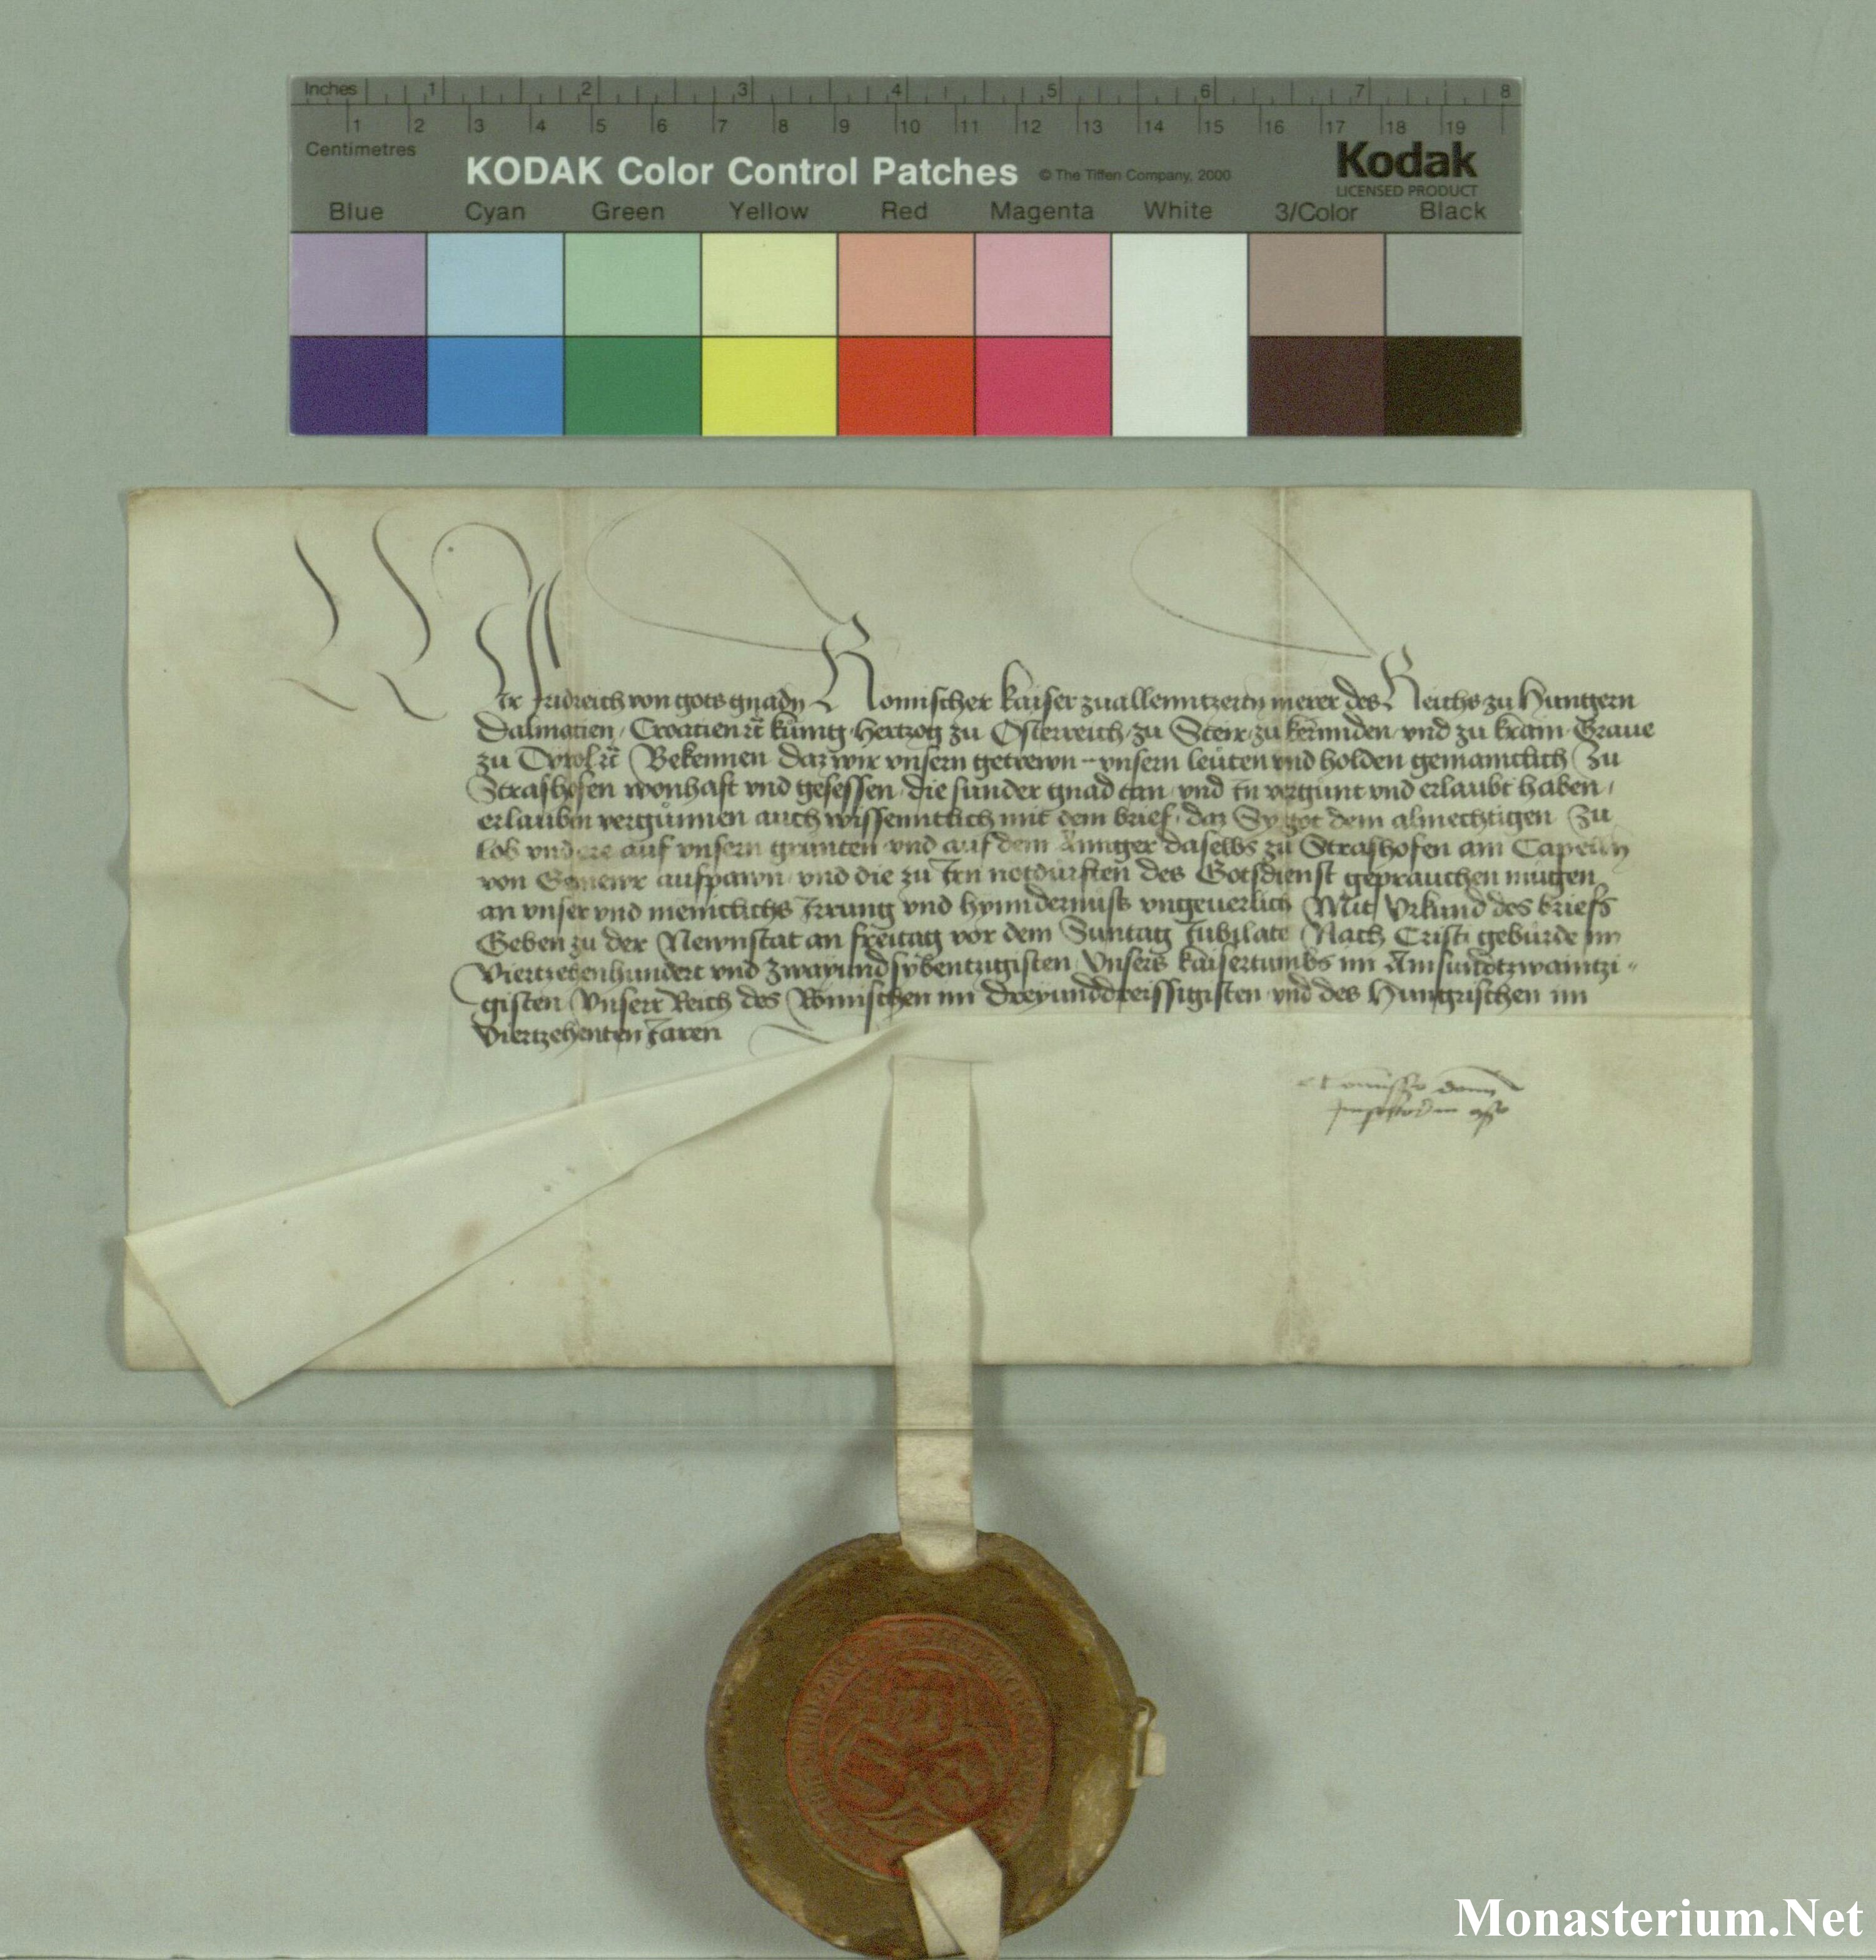 Inches 1 2 3 4 5 6 7 8
1 2 3 4 5 6 7 8 9 10 11 12 13 14 15 16 17 18 19
Centimetres
KODAK Color Control Patches © The Tiffen Company, 2000 Kodak
LICENSED PRODUCT
Blue Cyan Green Yellow Red Magenta White 3/Color Black
Wir Fridreich von gots gnadn Romischer kaiser zuallenntzeitn merer des Reichs zu Hungern
Dalmatien, Croatien ꝛc̃ kunig, Hertzog zu Osterreich, zu Steir, zu kernnden, vnd zu krain, Graue
zu Tyrol ꝛc̃ Bekennen, daz wir vnsern getrewn - vnsern leuten vnd holden gemaintlich zu
Strashofen wonhaft vnd gesessen, die sunder gnad tan, vnd in vergunt vnd erlaubt haben,
erlaubn vergunnen auch wissenntlich mit dem brief, daz Sy got dem almechtigen zu
lob vnd ere auf vnsern grunten vnd auf dem Annger daselbs zu Strashofen ain Capelln
von Gemewr aufpawn, vnd die zu Irn notdurften des Gotsdienst geprauchen mugen,
an vnser vnd meniclichs Irrung vnd hynndernuss vngeuerlich Mit Vrkund des briefs
Geben zu der Newnstat an freitag vor dem Suntag Jubilate Nach Cristi geburde im
Viertzehenhundert vnd zwayundsybentzigisten, Vnsers kaisertumbs im Ainsundtzwaintzi-
gisten Vnserr Reich des Romischen im dreyunddreissigisten vnd des Hungrischen im
Viertzehenten Jaren
Comissio domini
Imperatoris
Monasterium.Net